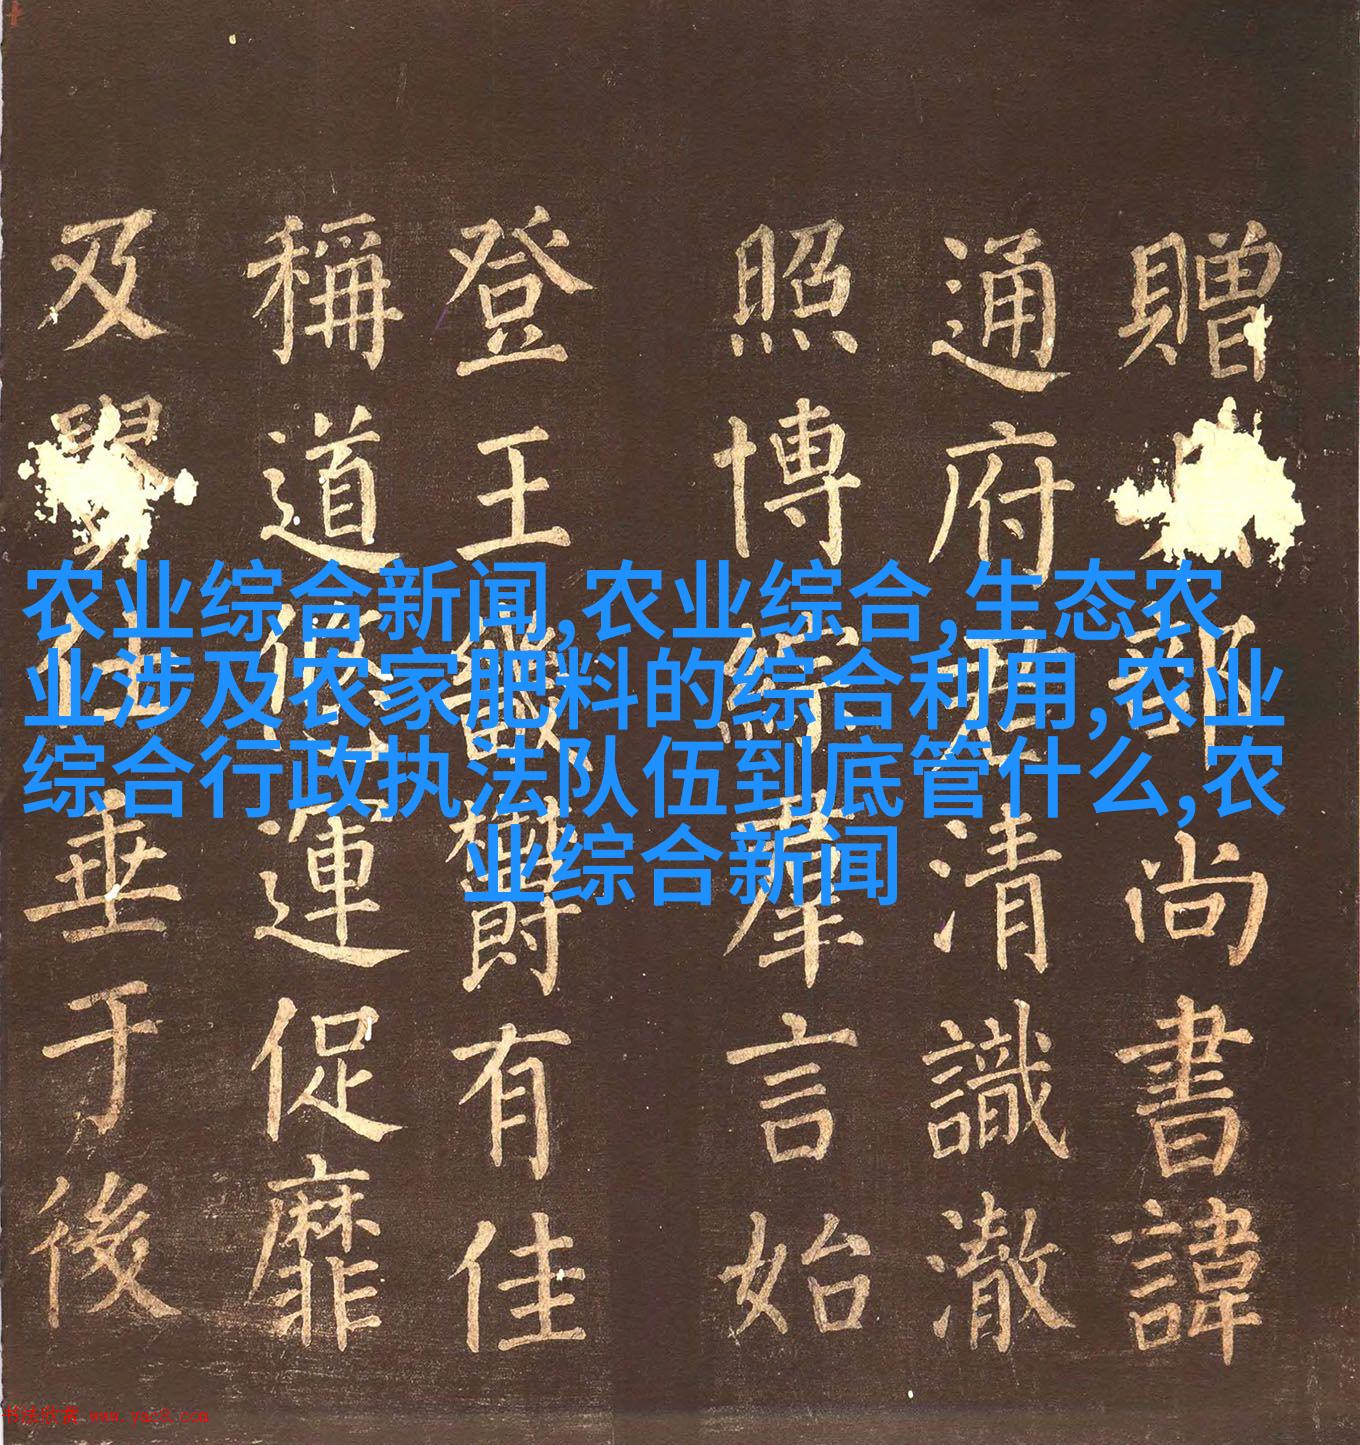 农业综合新闻,农业综合,生态农
业涉及农家肥料的综合利用,农业
综合行政执法队伍到底管什么,农
业综合新闻
贈部尚書諱
通府清識澈
照博綜羣言始
登王畿鬱有佳
稱道運促靡
及垂于後
书法欣赏 www.yac8.com